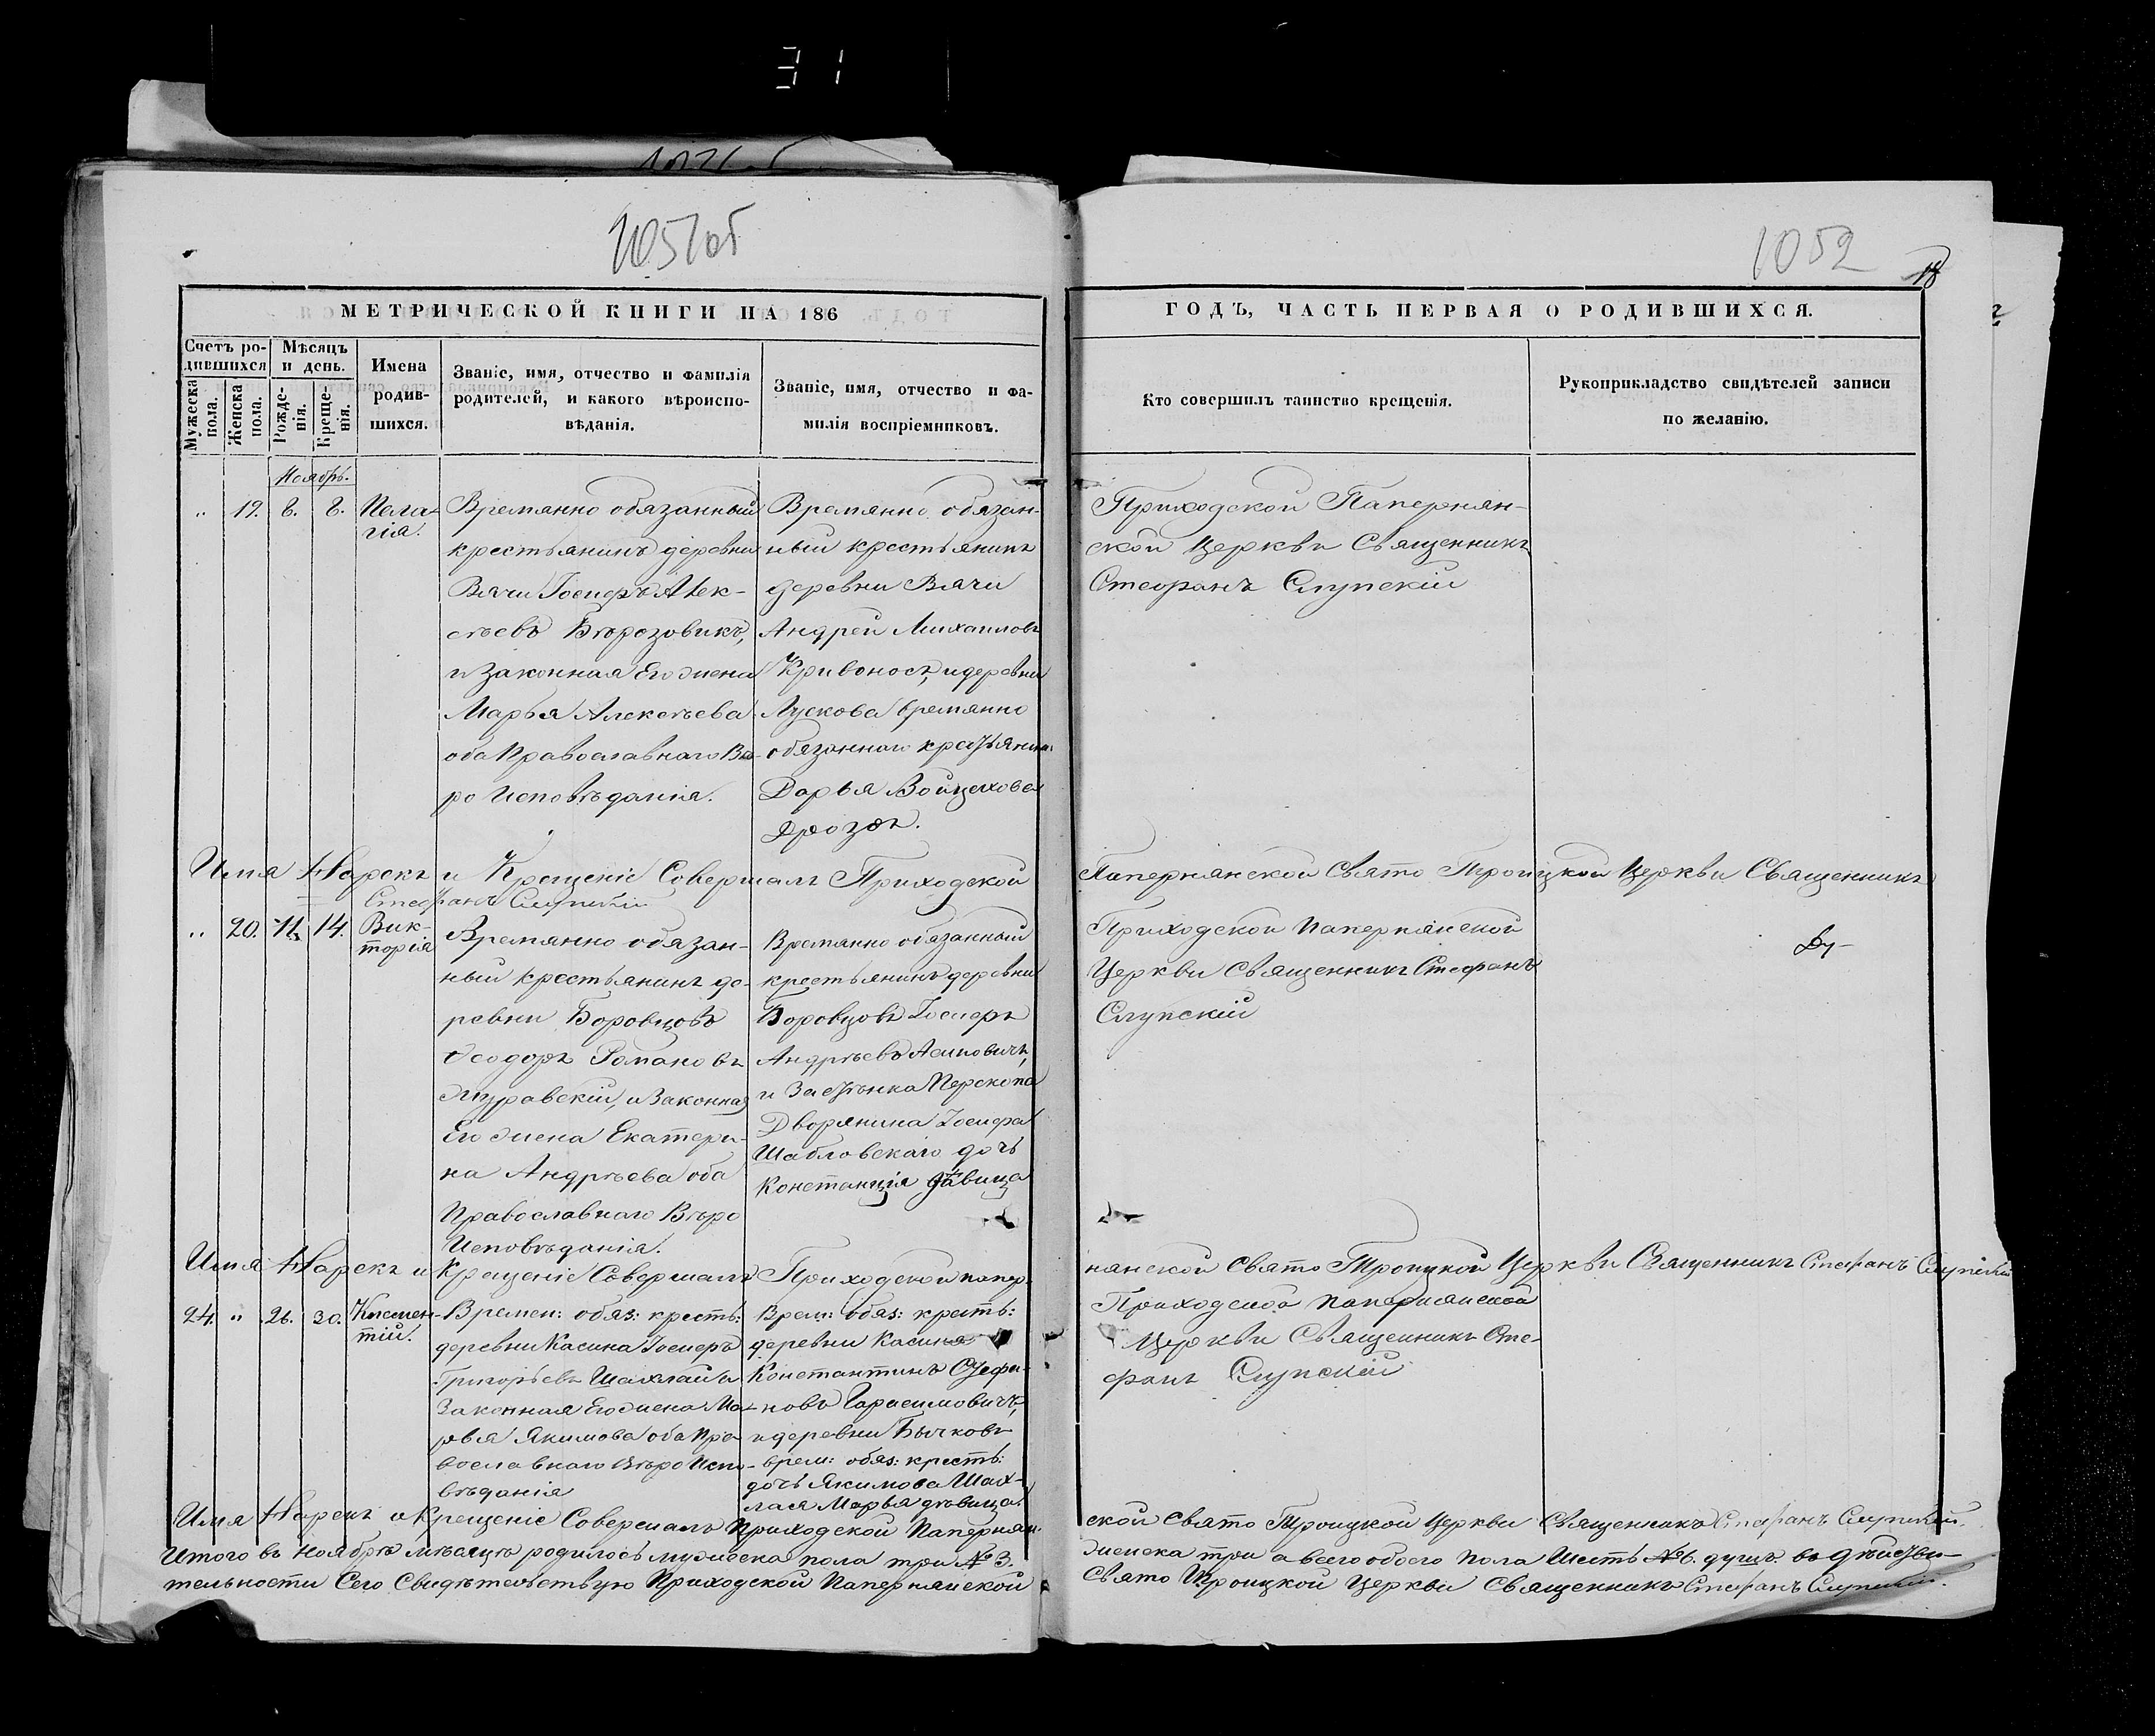 31
1051об
1052
18
МЕТРИЧЕСКОЙ КНИГИ НА 186
ГОДЪ, ЧАСТЬ ПЕРВАЯ О РОДИВШИХСЯ.
Счетъ ро-
дившихся
Мѣсяцъ
и день.
Мужеска
пола.
Женска
пола.
Рожде-
нія.
Креще-
нія.
Имена
родив-
шихся.
Званіе, имя, отчество и фамилія
родителей, и какого вѣроиспо-
вѣданія.
Званіе, имя, отчество и фа-
милія воспріемниковъ.
Кто совершилъ таинство крещенія.
Рукоприкладство свидѣтелей записи
по желанію.
Ноябрь.
„ 19. 8. 8.
Пела-
гія.
Времянно обязанный
крестьянинъ деревни
Вячи Іосифъ Алек-
сѣевъ Бѣрозовикъ,
и Законная Его жена
Марья Алексѣева
оба Православнаго Вѣ-
ро Исповѣданія.
Времянно обязан-
ный крестьянинъ
деревни Вячи
Андрей Михаиловъ
Кривоносъ, и деревни
Лускова времянно
обязаннаго крестьянина
Дарья Войцехова
Дроздъ.
Приходской Папернян-
ской Церкви Священникъ
Стефанъ Слупскій
Имя Нарекъ и Крещеніе Совершалъ Приходской
Папернянской Свято Троицкой Церкви Священникъ
Стефанъ Слупскій
„ 20. 11. 14.
Вик-
торія
Времянно обязан-
ный крестьянинъ де-
ревни Боровцовъ
Ѳеодоръ Романовъ
Журавскій, и Законная
Его жена Екатери-
на Андрѣева оба
Православнаго Вѣро
Исповѣданія.
Времянно обязанный
крестьянинъ деревни
Боровцовъ Іосифъ
Андрѣевъ
и Застѣнка Перекопа
Дворянина Іосифа
Шабловскаго дочь
Констанція дѣвица
Приходской Папернянской
Церкви Священникъ Стефанъ
Слупскій
Имя Нарекъ и Крещеніе Совершалъ Приходской Папер-
нянской Свято Троицкой Церкви Священникъ Стефанъ Слупскій
24. „ 26. 30.
Климен-
тій.
Времен: обяз: кресть:
деревни Касина Іосифъ
Григорьевъ Шахлай и
Законная Его жена Ма-
рья Якимова оба Пра-
вославнаго Вѣро Испо-
вѣданія
Врем: обяз: кресть:
деревни Касина
Константинъ
новъ Гарасимовичъ,
и деревни Бычковъ
врем: обяз: кресть:
дочь Якимова Шах-
лая Марья дѣвица.
Приходской Папернянской
Церкви Священникъ Сте-
фанъ Слупскій
Имя Нарекъ и Крещеніе Совершалъ Приходской Папернян-
ской Свято Троицкой Церкви Священникъ Стефанъ Слупскій.
Итого въ Ноябрѣ мѣсяцѣ родилось мужеска пола три № 3.
женска три а всего обоего пола Шесть № 6. душъ. въ дѣйстви-
тельности Сего Свидѣтельствую Приходской Папернянской
Свято Троицкой Церкви Священникъ Стефанъ Слупскій.